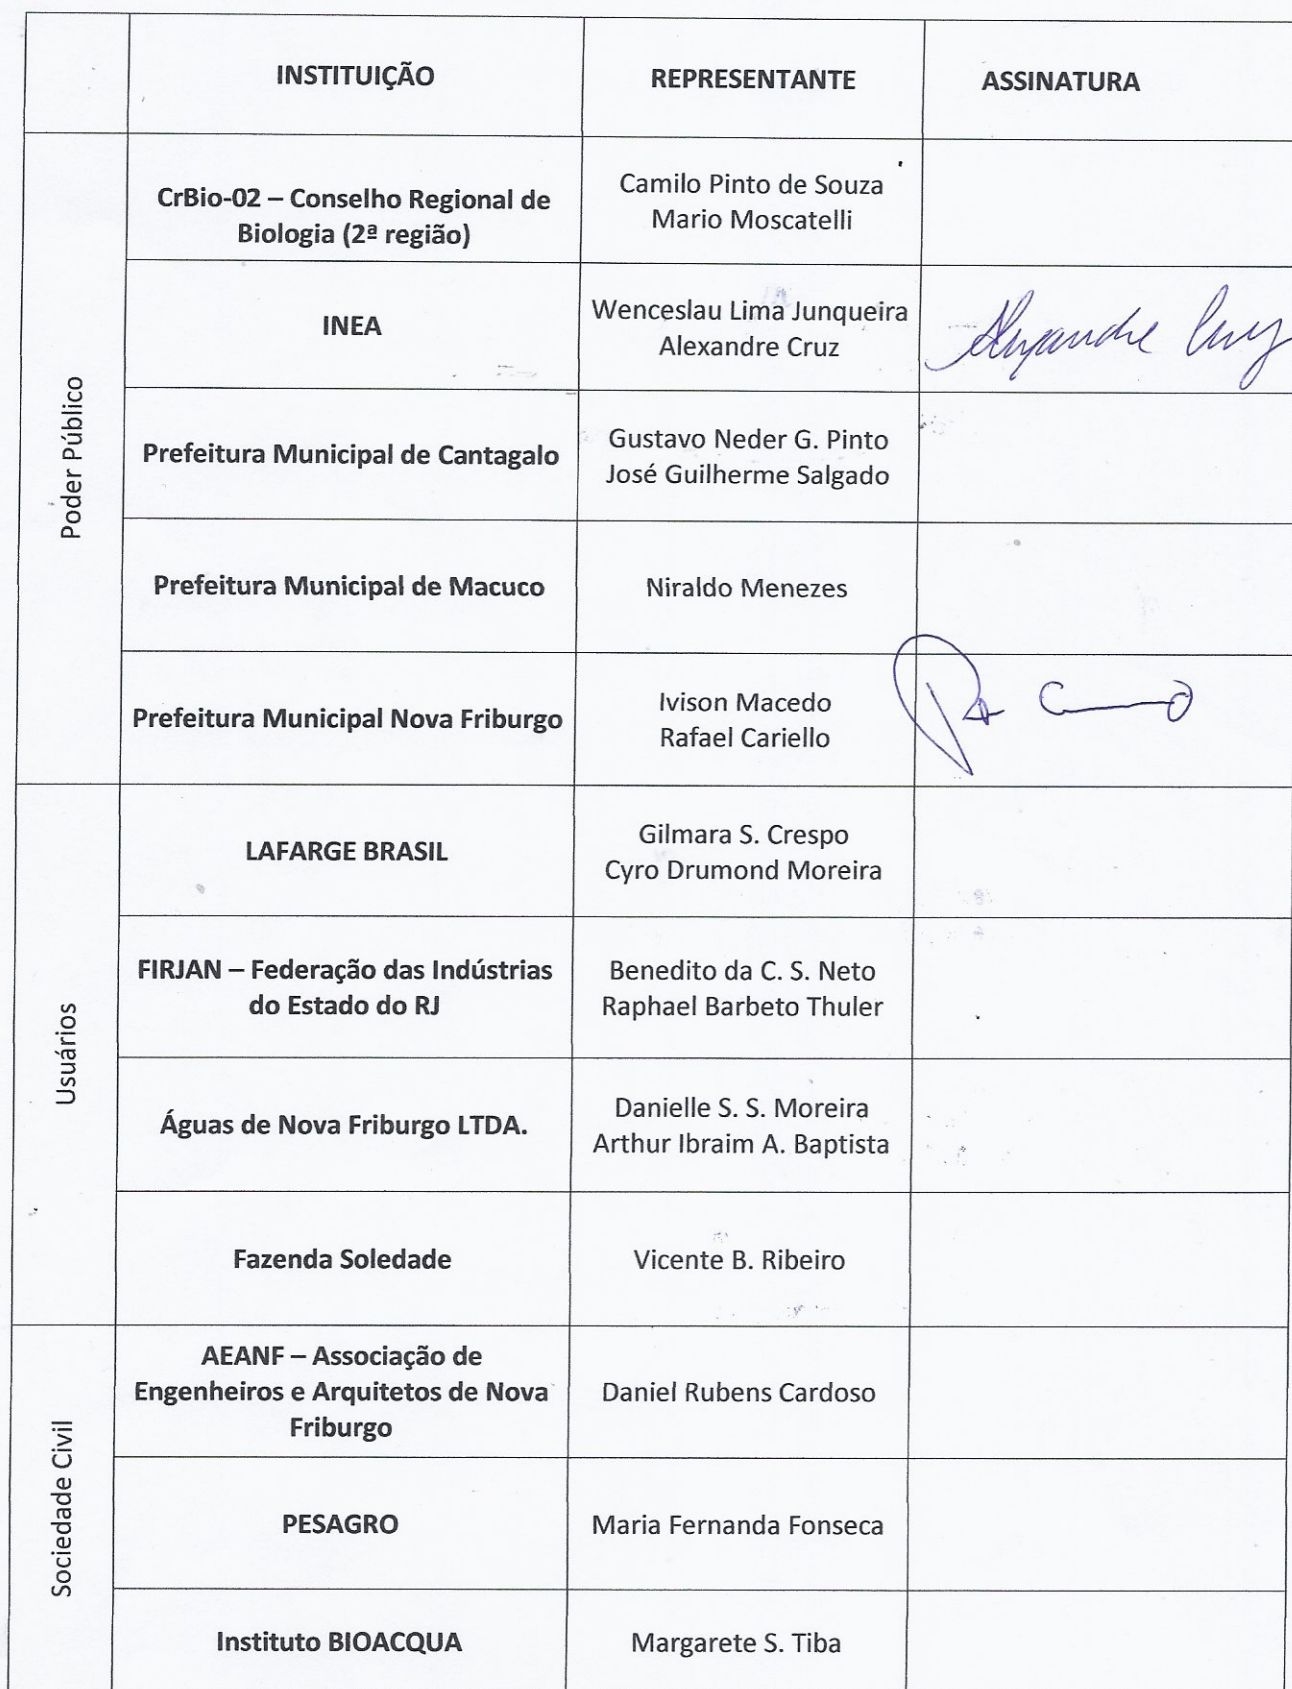 INSTITUIÇÃO
REPRESENTANTE
ASSINATURA
Poder Público
CrBio-02 – Conselho Regional de
Biologia (2ª região)
Camilo Pinto de Souza
Mario Moscatelli
INEA
Wenceslau Lima Junqueira
Alexandre Cruz
Alexandre Cruz
Prefeitura Municipal de Cantagalo
Gustavo Neder G. Pinto
José Guilherme Salgado
Prefeitura Municipal de Macuco
Niraldo Menezes
Prefeitura Municipal Nova Friburgo
Ivison Macedo
Rafael Cariello
Usuários
LAFARGE BRASIL
Gilmara S. Crespo
Cyro Drumond Moreira
FIRJAN – Federação das Indústrias
do Estado do RJ
Benedito da C. S. Neto
Raphael Barbeto Thuler
Águas de Nova Friburgo LTDA.
Danielle S. S. Moreira
Arthur Ibraim A. Baptista
Fazenda Soledade
Vicente B. Ribeiro
Sociedade Civil
AEANF – Associação de
Engenheiros e Arquitetos de Nova
Friburgo
Daniel Rubens Cardoso
PESAGRO
Maria Fernanda Fonseca
Instituto BIOACQUA
Margarete S. Tiba